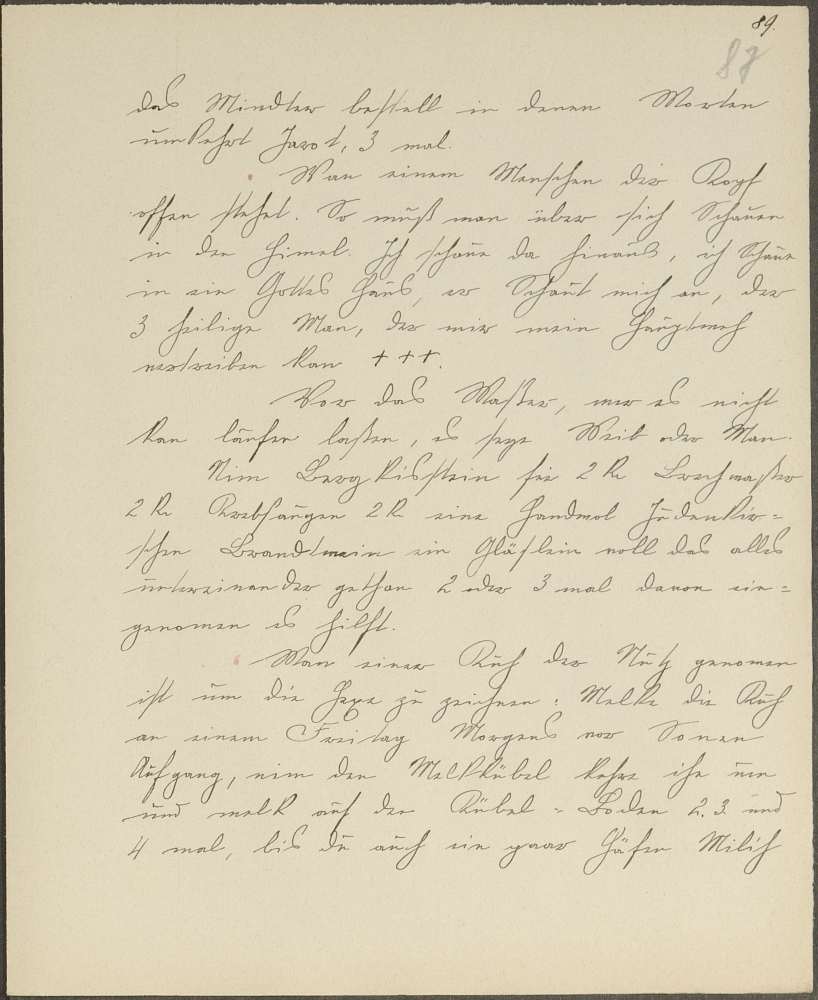 89.
87
das Mindter bestell in denen Worten
umkehrt Jarot, 3 mal.
Wan einem Menschen der Kopf
offen stehet. So muß man über sich Schauen
in den Himel. Ich schaue da hinauß, ich Schaue
in ein Gottes Hauß, er Schaut mich an, der
3 heilige Man, der mir mein Hauptweh
vertreiben kan +++.
Vor das Waßer, wer es nicht
kan laufen laßen, es seye Weib oder Man.
Nim Bergkisstein für 2 Kr Brechwaßer
2 Kr Krebsaugen 2 Kr eine Handvol Judenkir=
schen Brandtwein ein Gläslein voll das alles
untereinander gethan 2 oder 3 mal davon ein=
genomen es hilft.
Wan einer Kuh der Nutz genomen
ist um die Hexe zu zeichnen: Melke die Kuh
an einem Freitag Morgens vor Sonen
Aufgang, nim den Melkkübel kehre ihn um
und melk auf den Kübel = Boden 2. 3. und
4 mal, bis du auch ein paar Häfen Milch